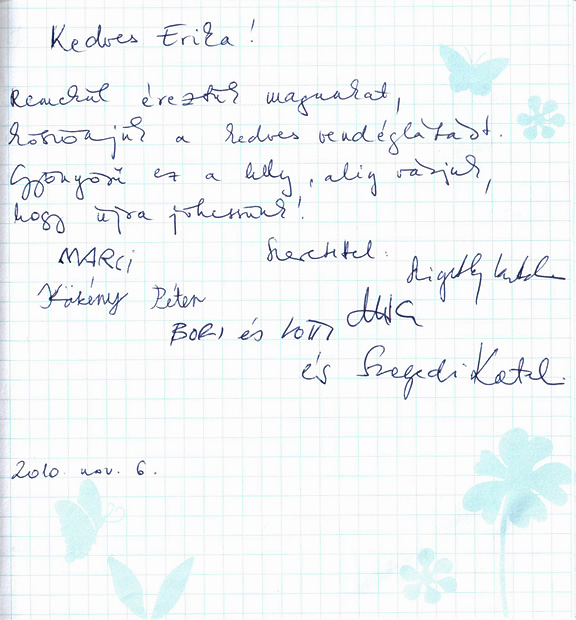 Kedves Erika!
Remekül éreztük magunkat,
köszönjük a kedves vendéglátást.
Gyönyörű ez a hely, alig várjuk,
hogy újra jöhessünk!
MARCI
Szeretettel:
Kökény Péter
BORI és LOTTI
és Szegedi Katal
2010. nov. 6.